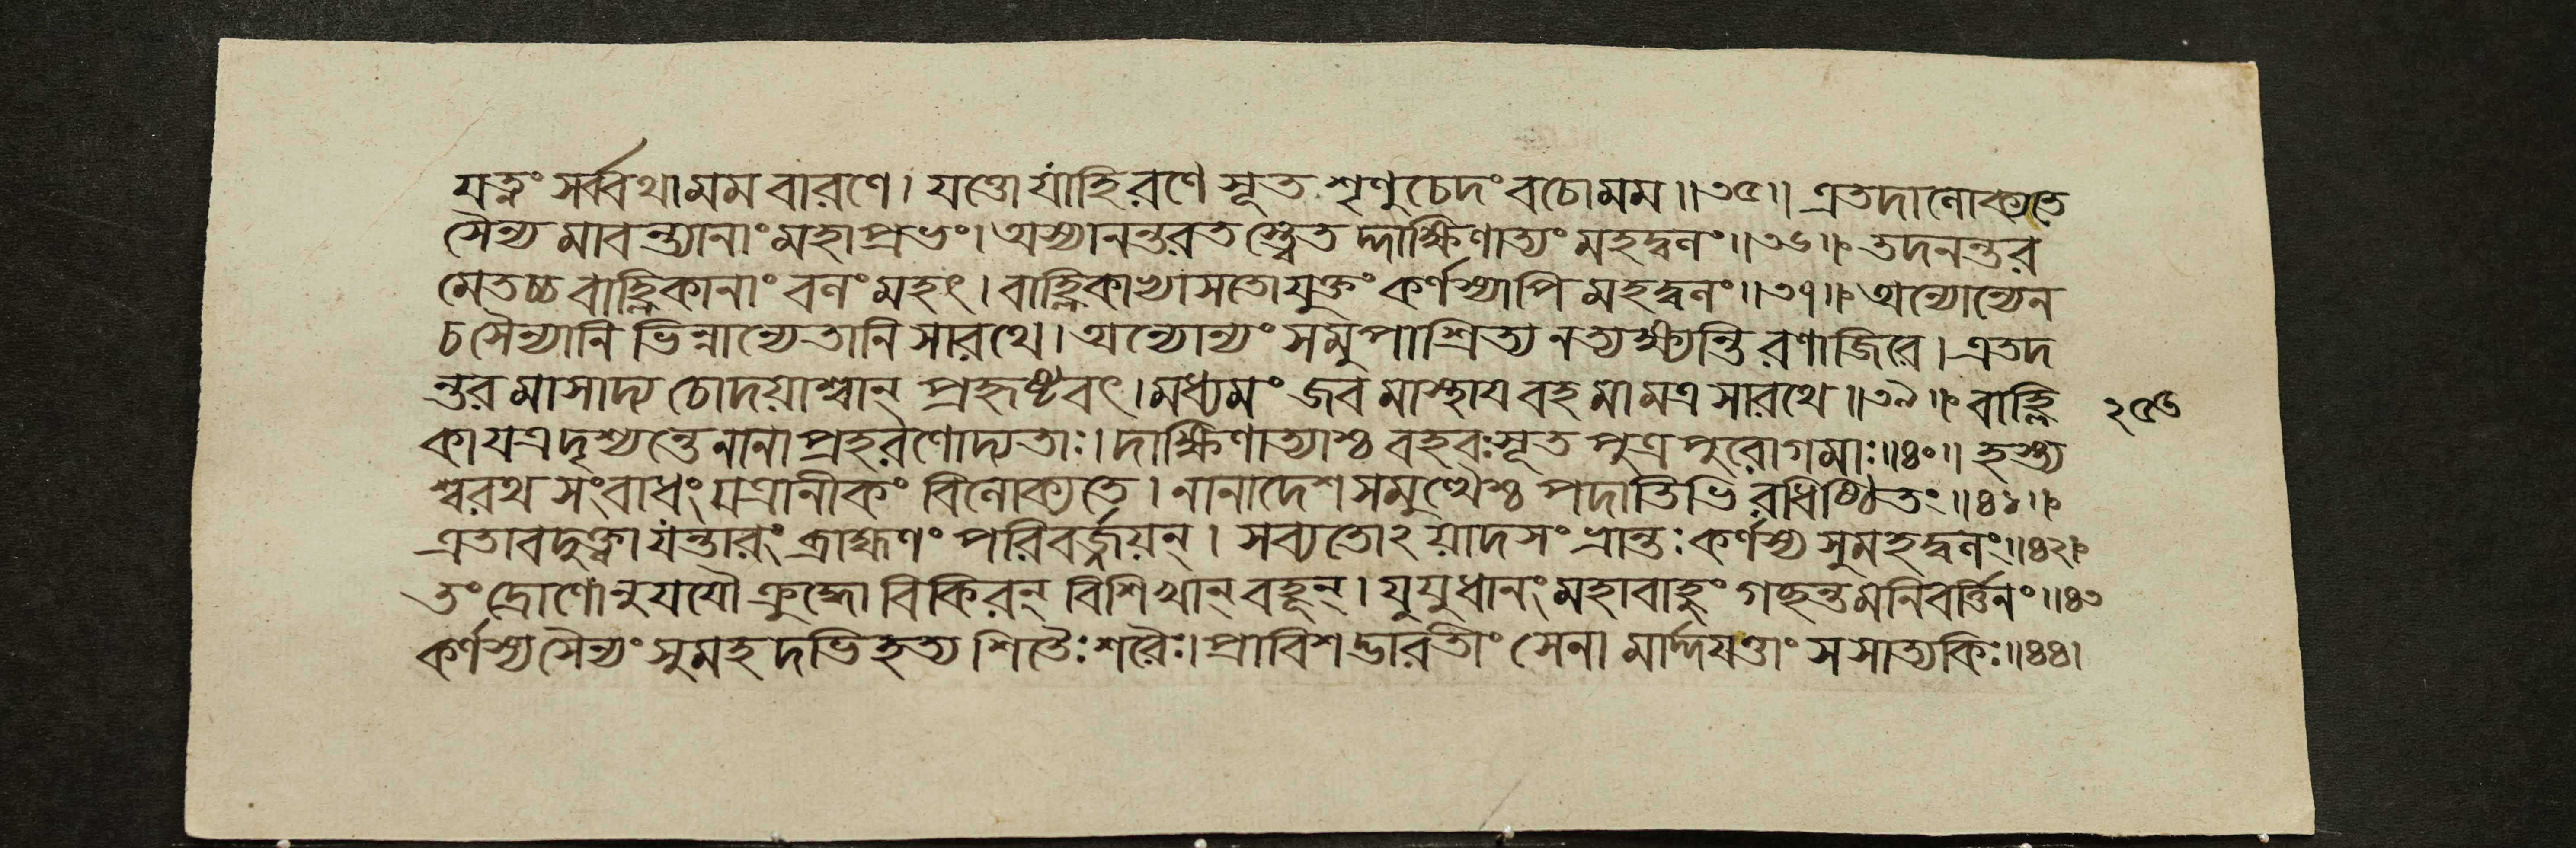 যত্নং সর্ব্বথা মম বারণে। যত্তো যাহি রণে সূত শৃণু চেদং বচো মম॥৩৫॥ এতদালোক্যতে
সৈন্য মাবন্ত্যানাং মহাপ্রভং। অস্যানন্তরতস্ত্বেত দ্দাক্ষিণাত্যং মহদ্বলং॥৩৬॥ তদনন্তর
মেতচ্চ বাহ্লিকানাং বলং মহৎ। বাহ্লিকাভ্যাসতো যুক্তং কর্ণস্যাপি মহদ্বলং॥৩৭॥ অন্যোন্যেন
চ সৈন্যানি ভিন্নান্যেতানি সারথে। অন্যোন্যং সমুপাশ্রিত্য ন ত্যক্ষ্যন্তি রণাজিরে। এতদ
ন্তর মাসাদ্য চোদয়াশ্বান্ প্রহৃষ্টবৎ। মধ্যমং জব মাস্থায বহ মামত্র সারথে॥৩৯॥ বাহ্লি
২৫৬
কা যত্র দৃশ্যন্তে নানা প্রহরণোদ্যতাঃ। দাক্ষিণাত্যাশ্চ বহবঃ সূত পুত্র পুরোগমাঃ॥৪০॥ হস্ত্য
শ্বরথ সংবাধং যত্রানীকং বিলোক্যতে। নানাদেশ সমুত্থৈশ্চ পদাতিভি রধিষ্ঠিতং॥৪১॥
এতাবদুক্ত্বা যন্তারং ব্রাহ্মণং পরিবর্জ্জয়ন্। সব্যতোঽয়াদসংভ্রান্তঃ কর্ণস্য সুমহদ্বলং॥৪২॥
তং দ্রোণোনুযযৌ ক্রুদ্ধো বিকিরন্ বিশিখান্ বহূন্। যুযুধানং মহাবাহুং গচ্ছন্তমনিবর্ত্তিনং॥৪৩
কর্ণস্য সৈন্যং সুমহদভিহত্য শিতৈঃ শরৈঃ। প্রাবিশদ্ভারতীং সেনা মার্দ্দযত্তাং স সাত্যকিঃ॥৪৪।